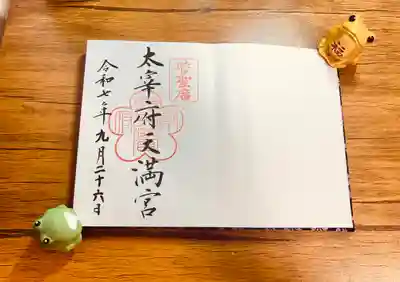 太宰府天満宮
令和七年九月二十六日
菅聖廟
福